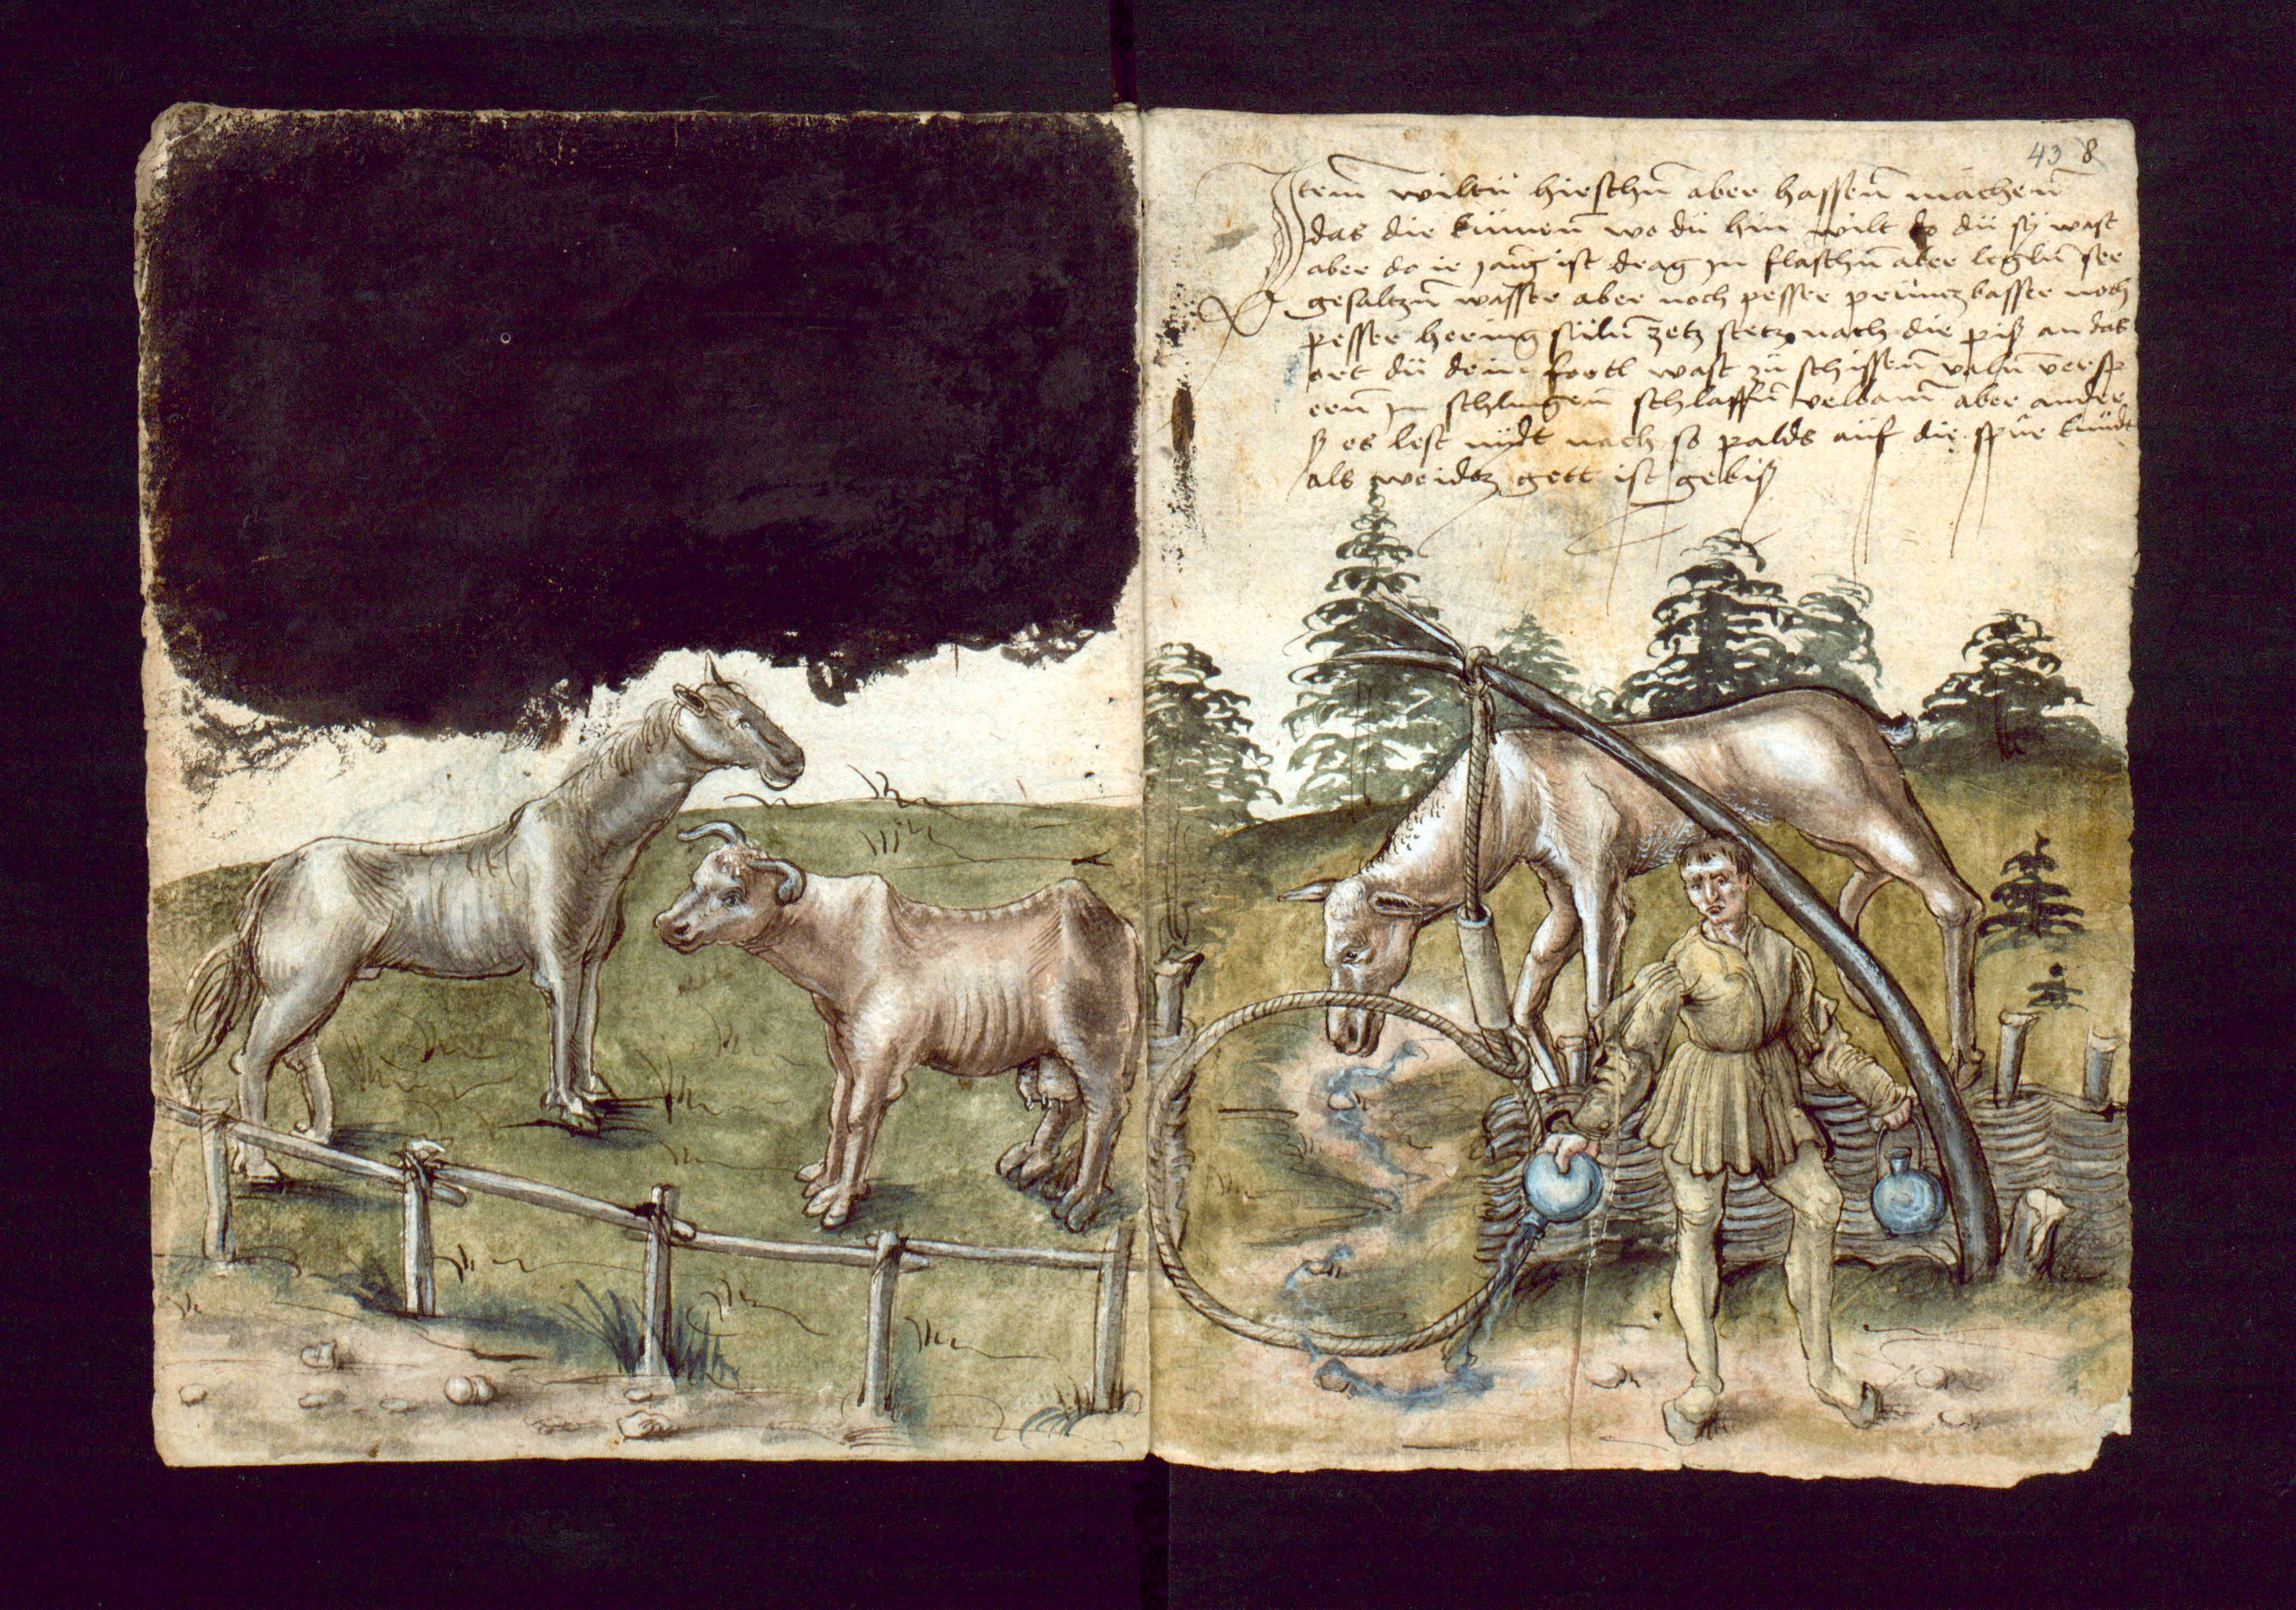 43 8
Item wiltu hirschn̄ aber hassen̄ machen̄
das die kumen̄ wo du hin wilt do du sÿ wast
aber do ir gang ist drag in flaschn̄ aber legln̄ ser
gesaltzn̄ wasser aber noch pesser prüntzbasser noch
pesser hering sultz stetz nach die pis an das
ort du dein wast zu schissen̄
in schlingen̄ schlaffn̄ aber ander
es lest nÿdt nach so palds auf die spur kumdt
als weidtz gett ist gebis